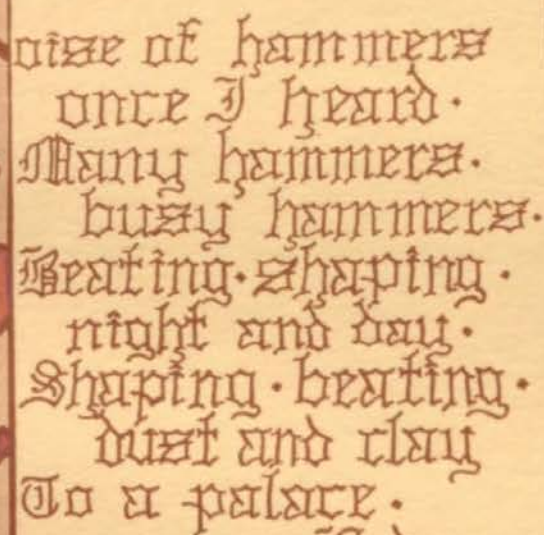 oise of hammers
once I heard·
Many hammers·
busy hammers·
Beating·shaping·
night and day·
Shaping·beating·
dust and clay
To a palace·